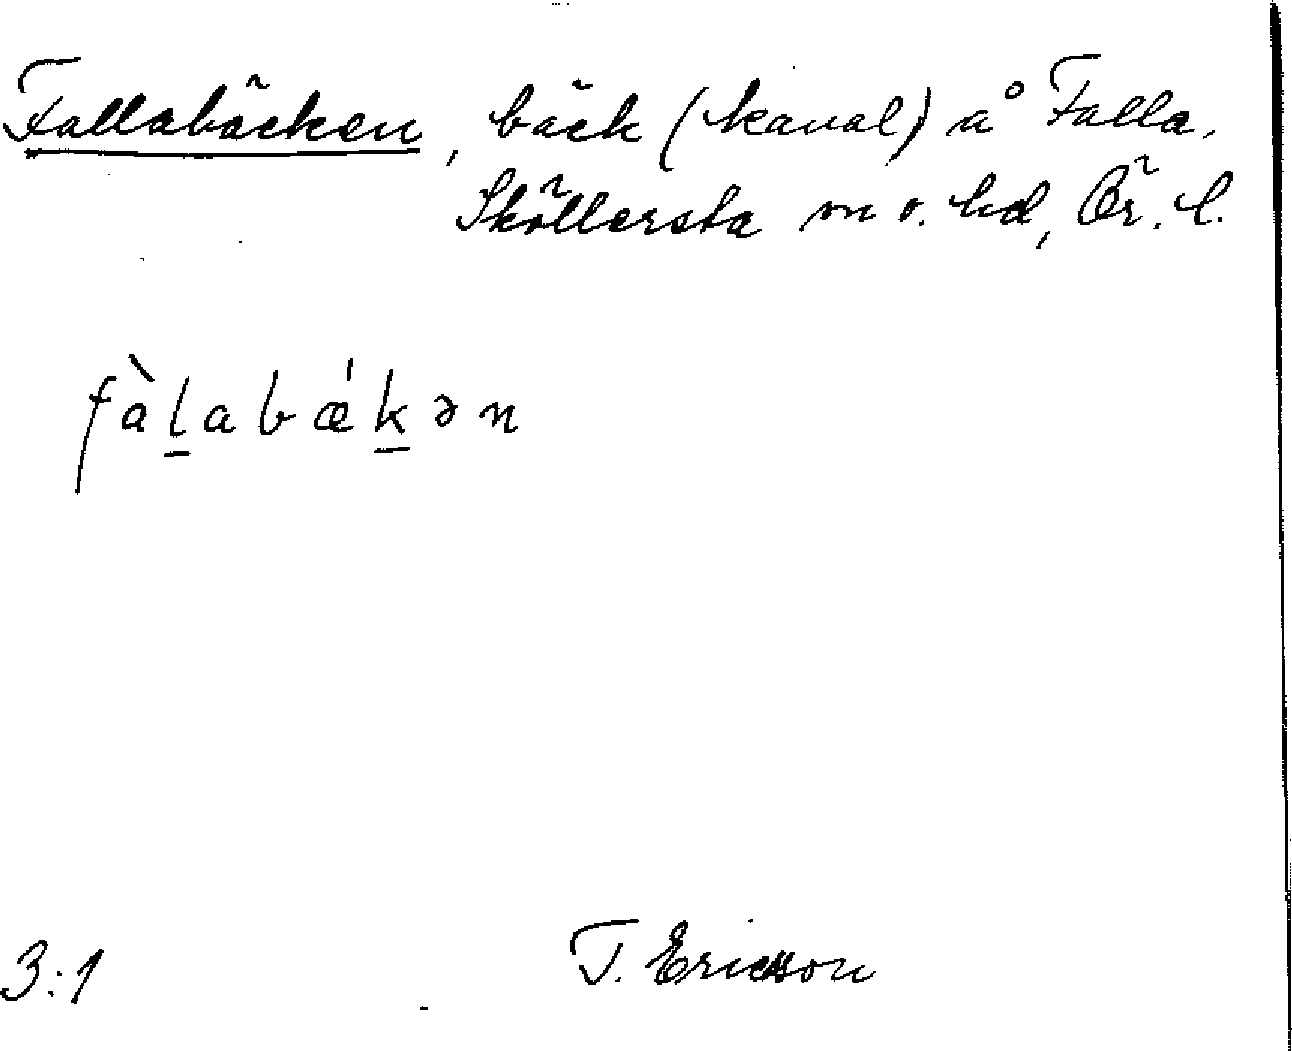 Fallabäcken, bäck (kanal) å Falla,
Sköllersta sn o. hd, Ör. l.
fàl̲abǽk̲ən
3:1
T. Ericsson